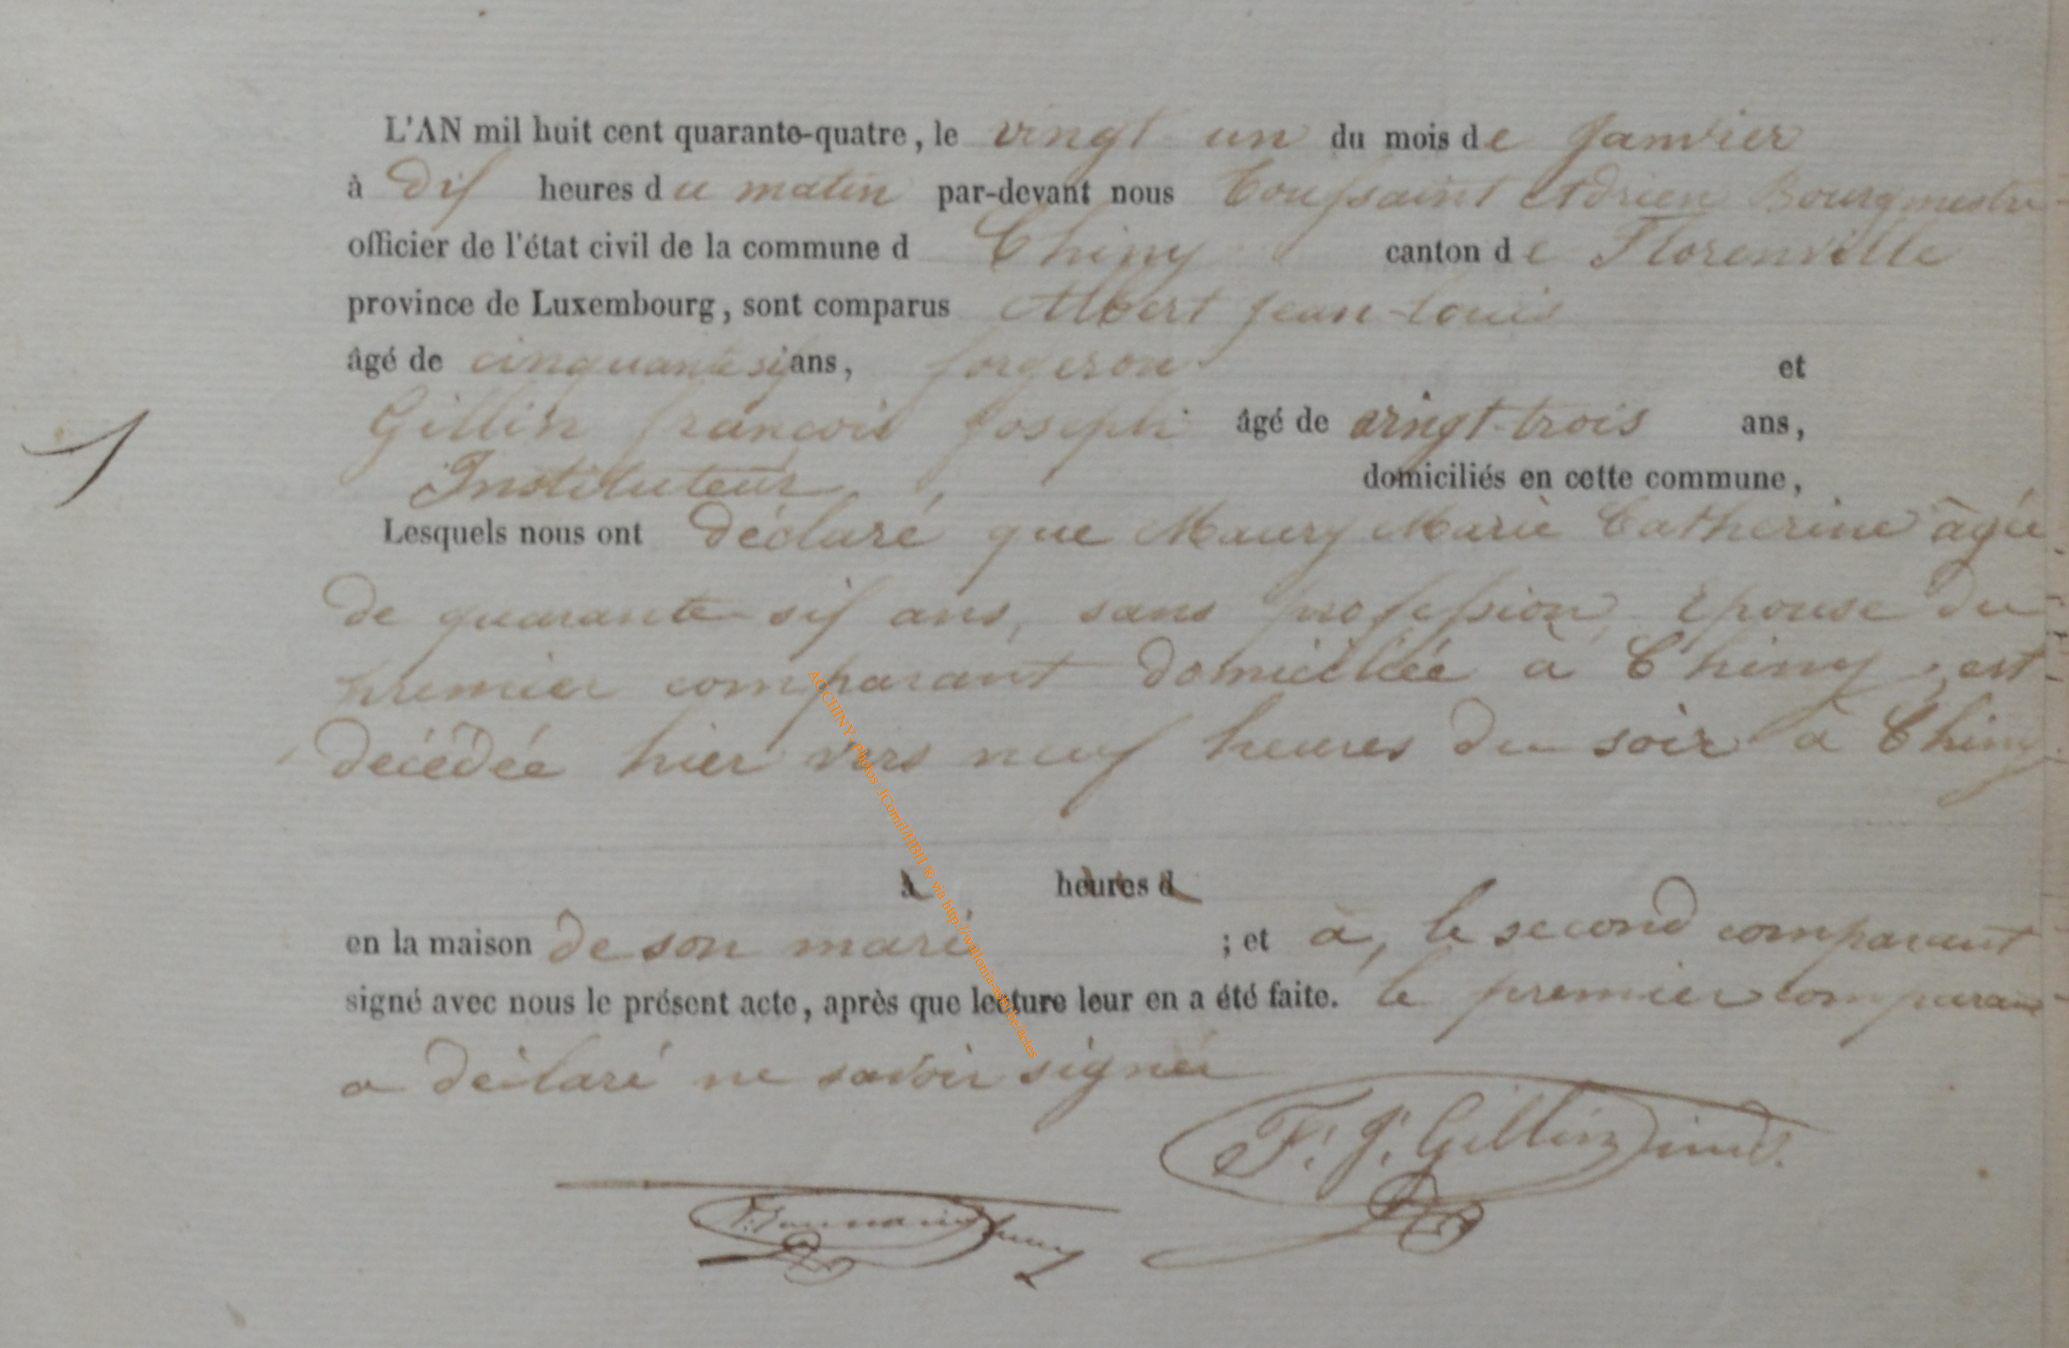 L'AN mil huit cent quarante-quatre, le vingt un du mois de Janvier
à dix heures du matin par-devant nous Toussaint Adrien Bourgmestre
officier de l'état civil de la commune d Chiny canton de Florenville
province de Luxembourg, sont comparus Albert Jean-louis
âgé de cinquante six ans, forgeron et
Gillin françois Joseph âgé de vingt-trois ans,
Instituteur, domiciliés en cette commune,
Lesquels nous ont déclaré que Maury Marie Catherine âgée
de quarante six ans, sans profession, épouse du
premier comparant domiciliée à Chiny, est
décédée hier vers neuf heures du soir à Chiny
à heures d
en la maison de son mari ; et a, le second comparant
signé avec nous le présent acte, après que lecture leur en a été faite. le premier comparant
a déclaré ne savoir signer
F. J. Gillin